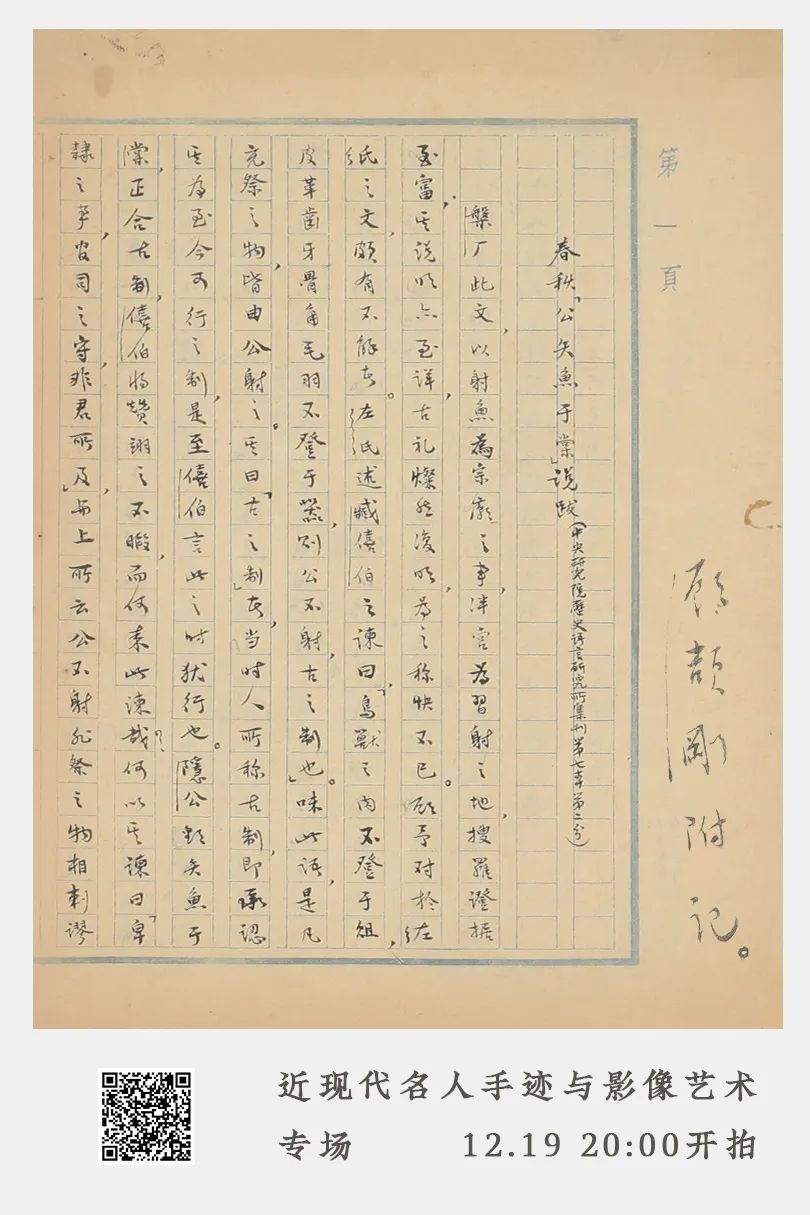 第一頁
顧頡剛附記。
春秋「公矢魚于棠」說跋（中央研究院歷史語言研究所集刊第七本第二分）
槃厂此文，以射魚為宗廟之事，泮宮為習射之地，搜羅證据
至富，其說明亦至詳，古礼燦然復明，為之称快不已。顧予对於左
氏之文，頗有不解者。左氏述臧僖伯之諫曰，「鳥獸之肉不登于俎，
皮革齒牙骨角毛羽不登于器，則公不射，古之制也」。味此語，是凡
充祭之物，皆由公射之。其曰「古之制」者，當时人所称古制，即承認
其為至今可行之制，是至僖伯言此之时犹行也。隱公欲矢魚于
棠，正合古制，僖伯將贊翊之不暇，而何来此諫哉？何以其諫曰，「皁
隸之事，官司之守，非君所及」，與上所云公不射非祭之物相刺謬
近现代名人手迹与影像艺术
专场 12.19 20:00开拍